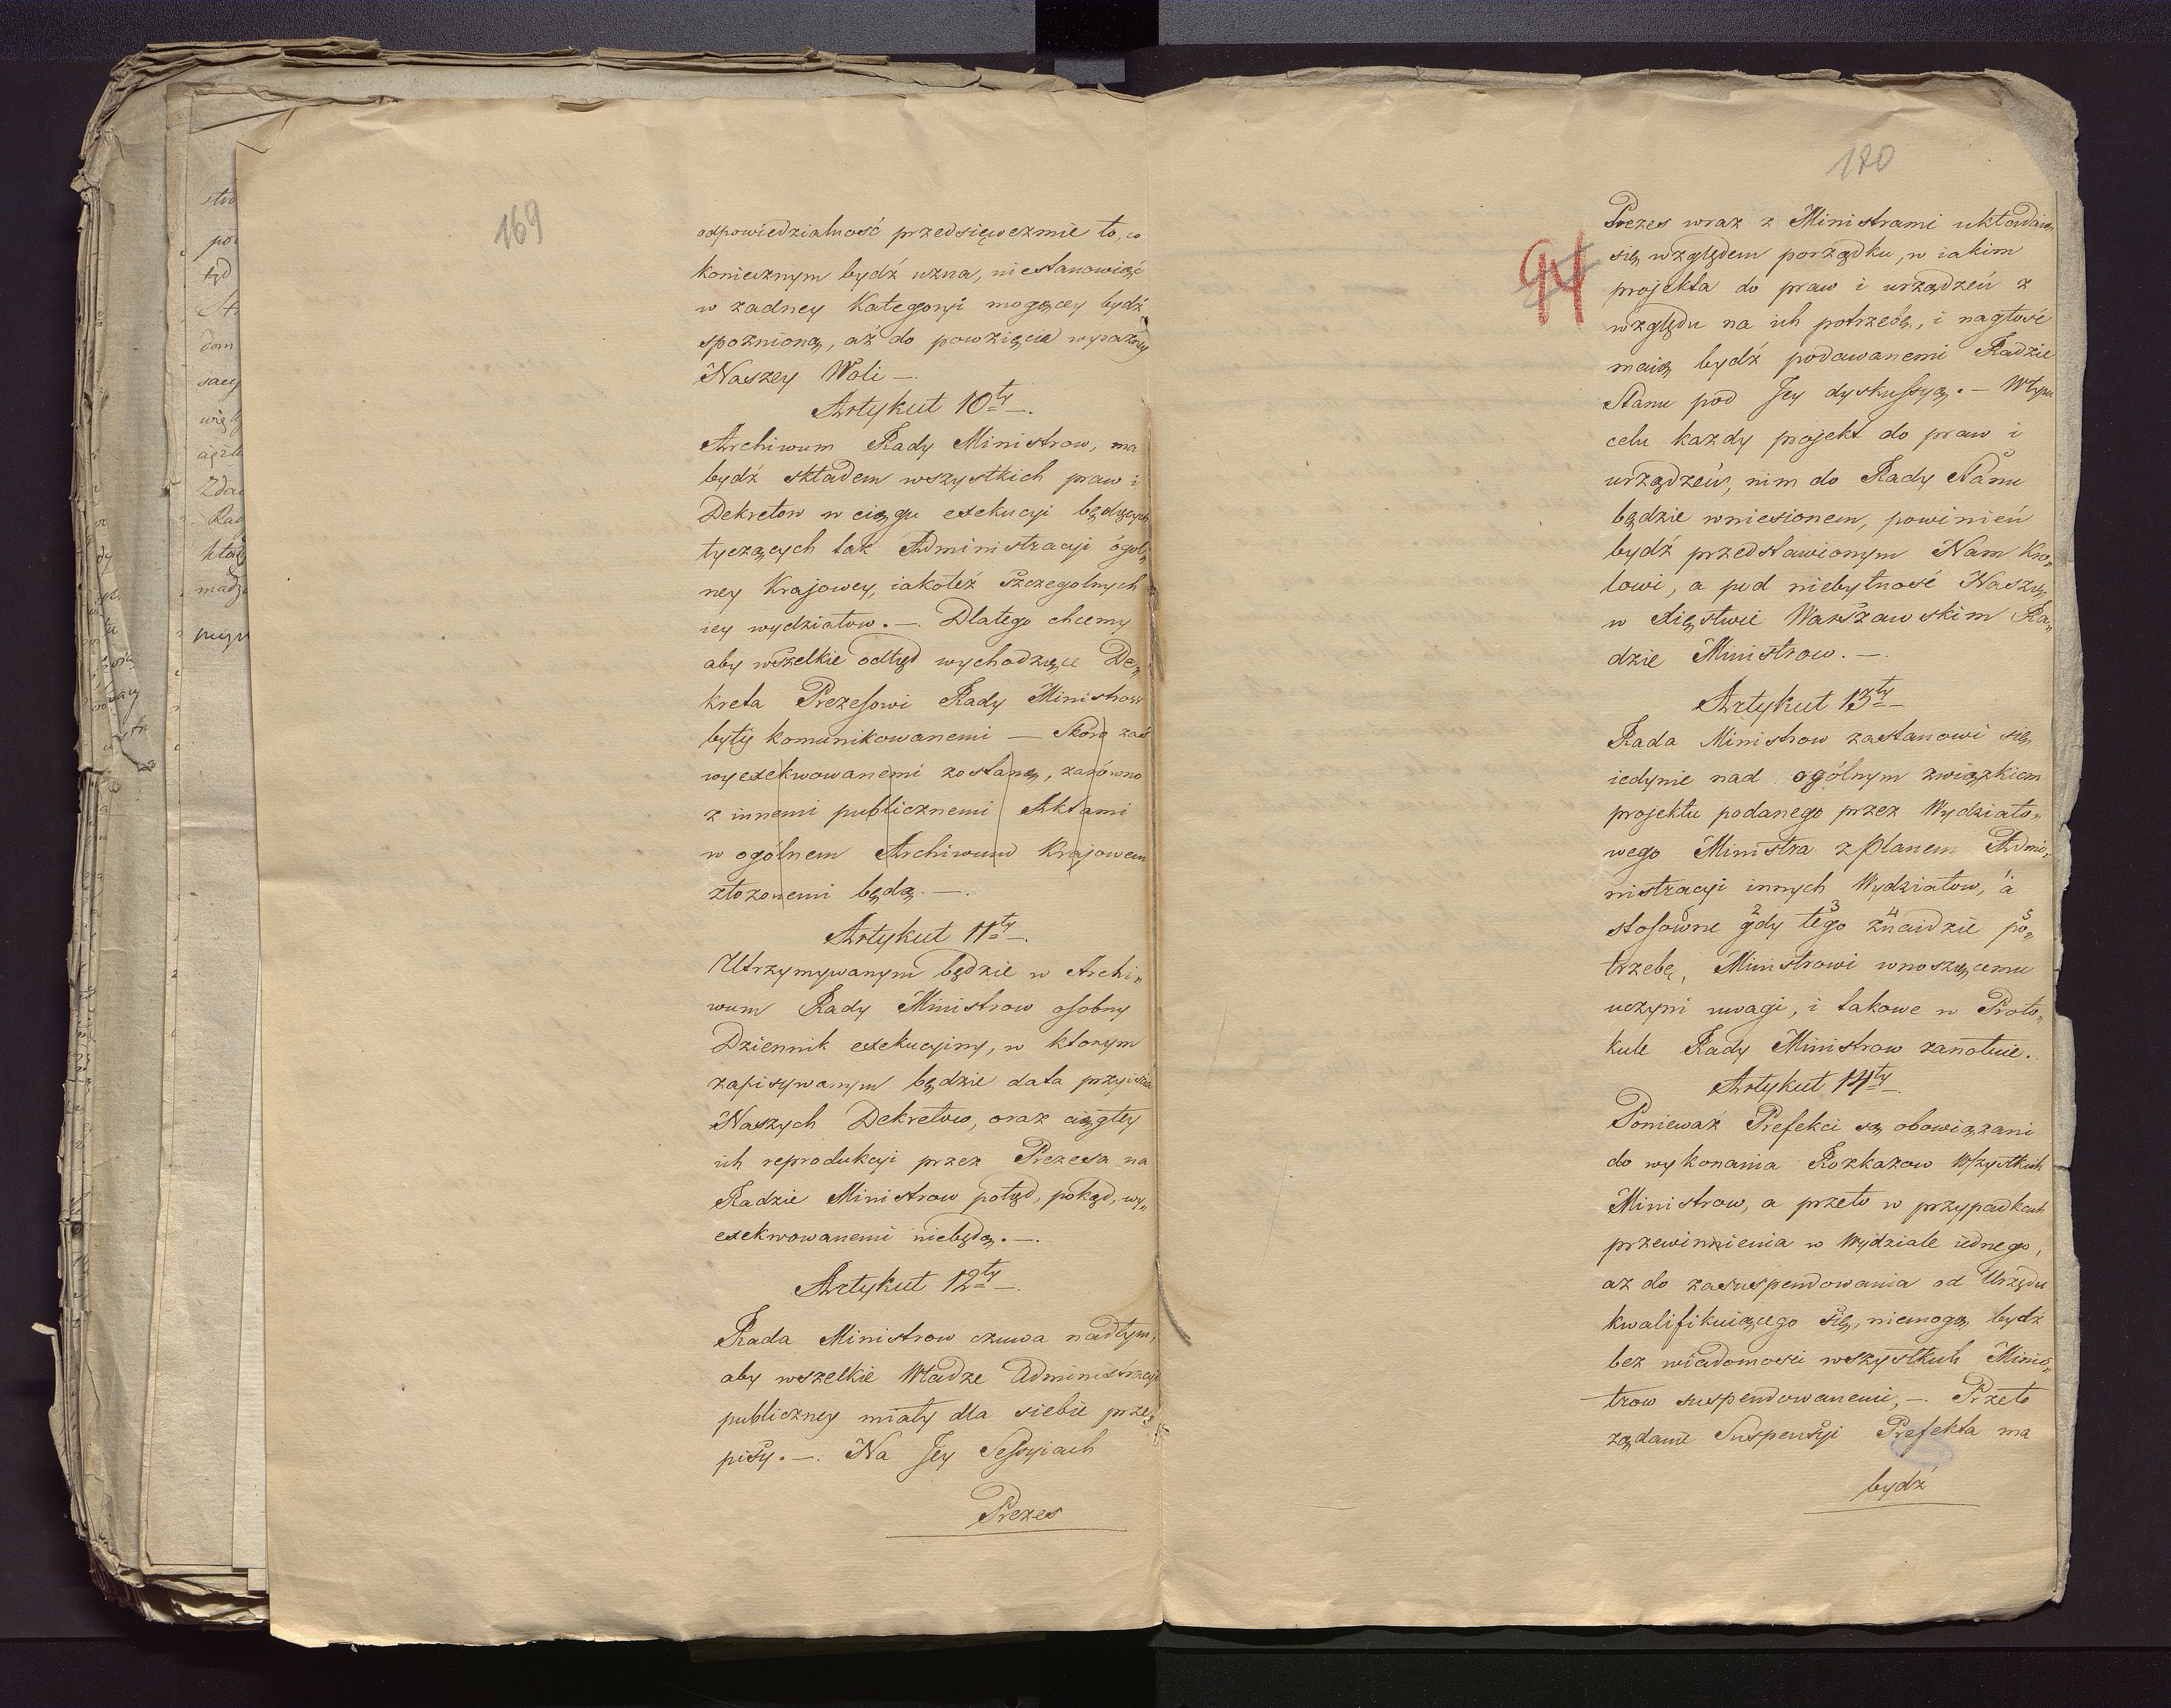 169
odpowiedzialność przedsięwezmie to, co
koniecznym bydź uzna, niestanowiąc
w żadney Kategoryi mogącey bydź
spoznioną, aż do powzięcia wyrażney
Naszey Woli —
Artykuł 10ty —.
Archiwum Rady Ministrow, ma
bydź składem wszystkich praw i
Dekretow w ciągu exekucyi będących
tyczących tak Administracyi ogól„
ney Krajowey, iakoteż szczegolnych
iey wydziałow. —. Dlatego chcemy
aby wszelkie odtąd wychodzące De„
kreta Prezesowi Rady Ministrow
były komunikowanemi — Skoro zaś
wyexekwowanemi zostaną, zarówno
z innemi publicznemi Aktami
w ogólnem Archiwum Krajowem
złożonemi będą. —.
Artykuł 11ty —.
Utrzymywanym będzie w Archi„
wum Rady Ministrow osobny
Dziennik exekucyiny, w ktorym
zapisywanym będzie data przyiścia
Naszych Dekretow, oraz ciągłey
ich reprodukcyi przez Prezesa na
Radzie Ministrow potąd, pokąd, wy„
exekwowanemi niebędą. —.
Artykuł 12ty —.
Rada Ministrow czuwa nadtym,
aby wszelkie Władze Administracyi
publiczney miały dla siebie prze„
pisy. —. Na Jey Sessyiach
Prezes
180
94
Prezes wraz z Ministrami układaią
się względem porządku, w iakim
projekta do praw i urządzeń z
względu na ich potrzebę, i nagłość
maią bydź podawanemi Radzie
Stanu pod Jey dyskussyą. — W tym
celu każdy projekt do praw i
urządzeń, nim do Rady Stanu
będzie wniesionem, powinień
bydź przedstawionym Nam Kro„
lowi, a pod niebytność Naszą
w Xięstwie Warszawskim Ra„
dzie Ministrow. —.
Artykuł 13ty —
Rada Ministrow zastanowi się
iedynie nad ogólnym związkiem
projektu podanego przez Wydziało„
wego Ministra z planem Admi„
nistracyi innych Wydziałow, a
stosowne gdy tego znaidzie po„
trzebę, Ministrowi wnoszącemu
uczyni uwagi, i takowe w Proto„
kule Rady Ministrow zanotuie.
Artykuł 14ty —.
Ponieważ Prefekci są obowiązani
do wykonania Rozkazow Wszystkich
Ministrow, a przeto w przypadkach
przewinnienia w Wydziale iednego,
aż do zasuspendowania od Urzędu
kwalifikuiącego się, niemogą bydź
bez wiadomości wszystkich Minis„
trow suspendowanemi, —. Przeto
żądanie Suspensyi Prefekta ma
bydź